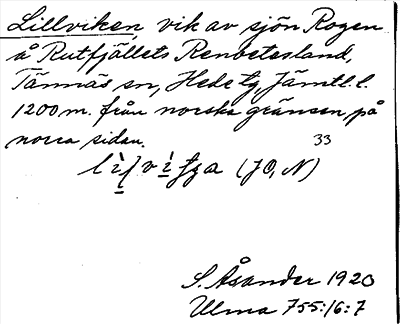 Lillviken, vik av sjön Rogen
å Rutfjällets Renbetesland,
Tännäs sn, Hede tg, Jämtl. l.
1200 m. från norska gränsen på
norra sidan.
33
(JO, N)
S. Åsander 1920
Ulma 755:16:7